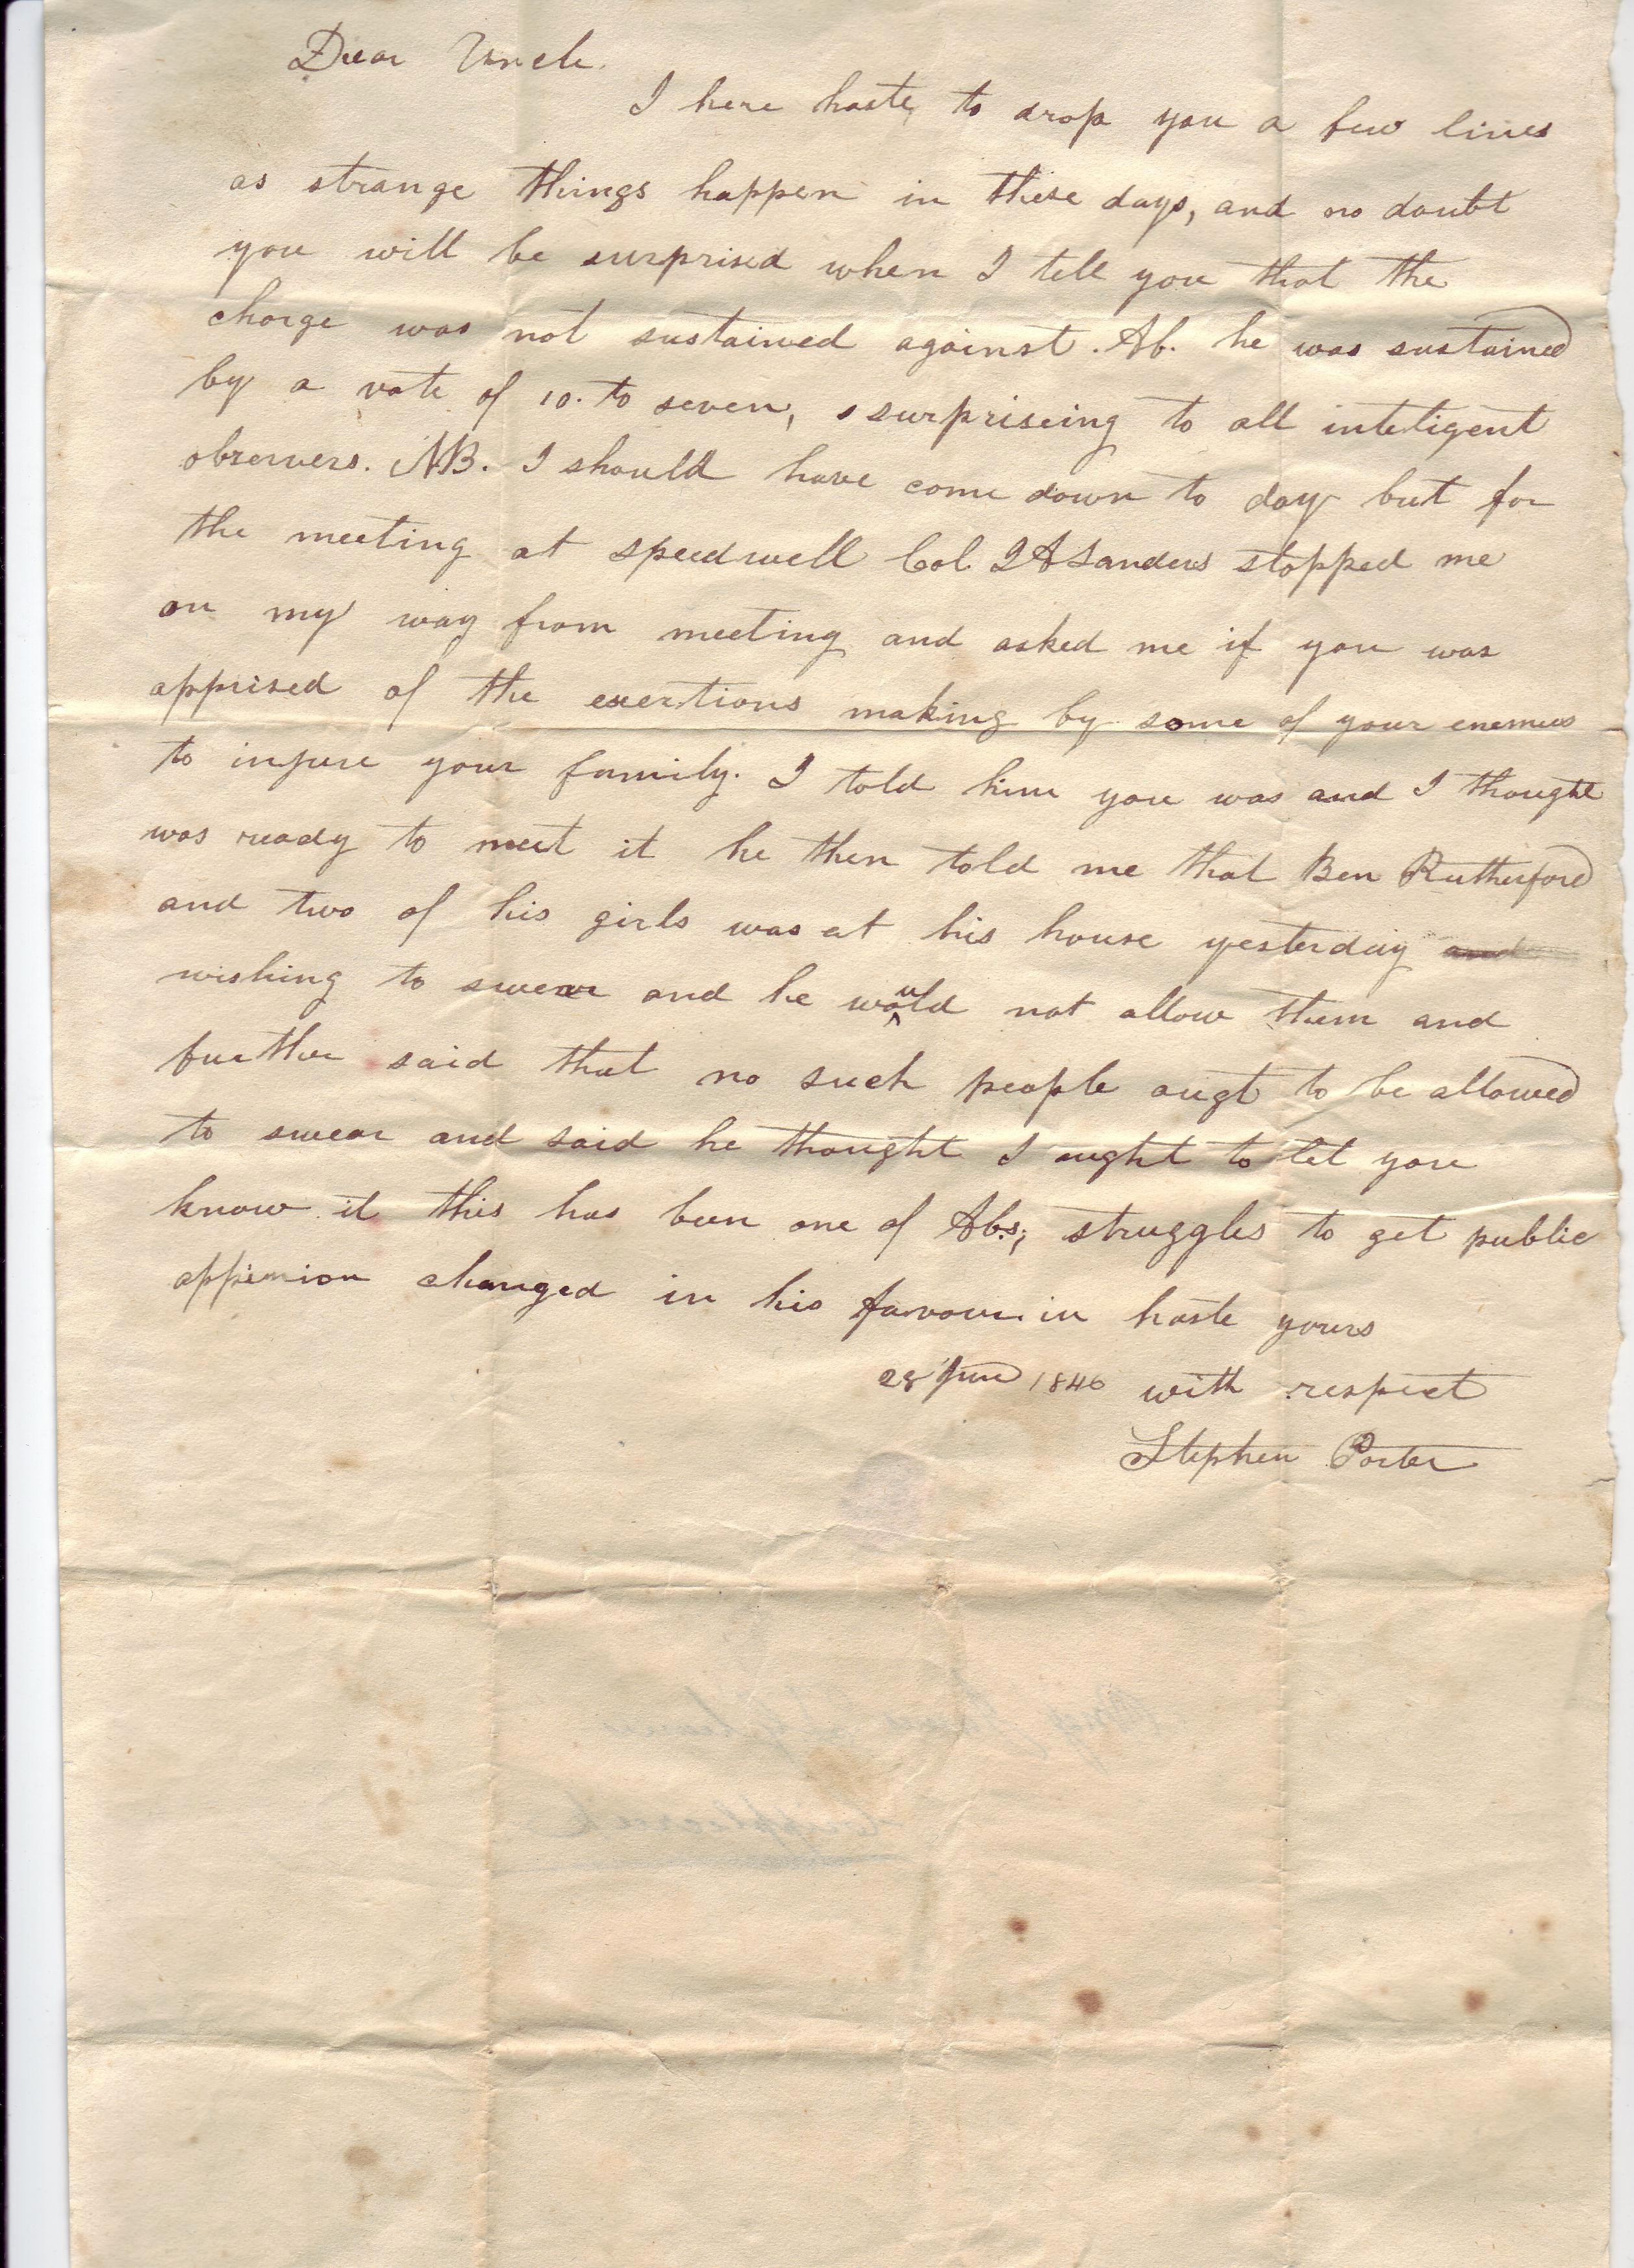 Dear Uncle.
I here haste to drop you a few lines
as strange things happen in these days, and no doubt
you will be surprised when I tell you that the
charge was not sustained against. Ab. he was sustained
by a vote of 10. to seven, surpriseing to all inteligent
observers. NB. I should have come down to day but for
the meeting at speedwell Col Sanders stopped me
on my way from meeting and asked me if you was
apprised of the exertions making by some of your enemies
to injure your family. I told him you was and I thought
was ready to meet it he then told me that Ben Rutherford
and two of his girls was at his house yesterday and
wishing to swear and he would not allow them and
further said that no such people ougt to be allowed
to swear and said he thought I ought to let you
know it this has been one of Abs, struggles to get public
oppinion changed in his favour. in haste yours
28 June 1846 with respect
Stephen Porter